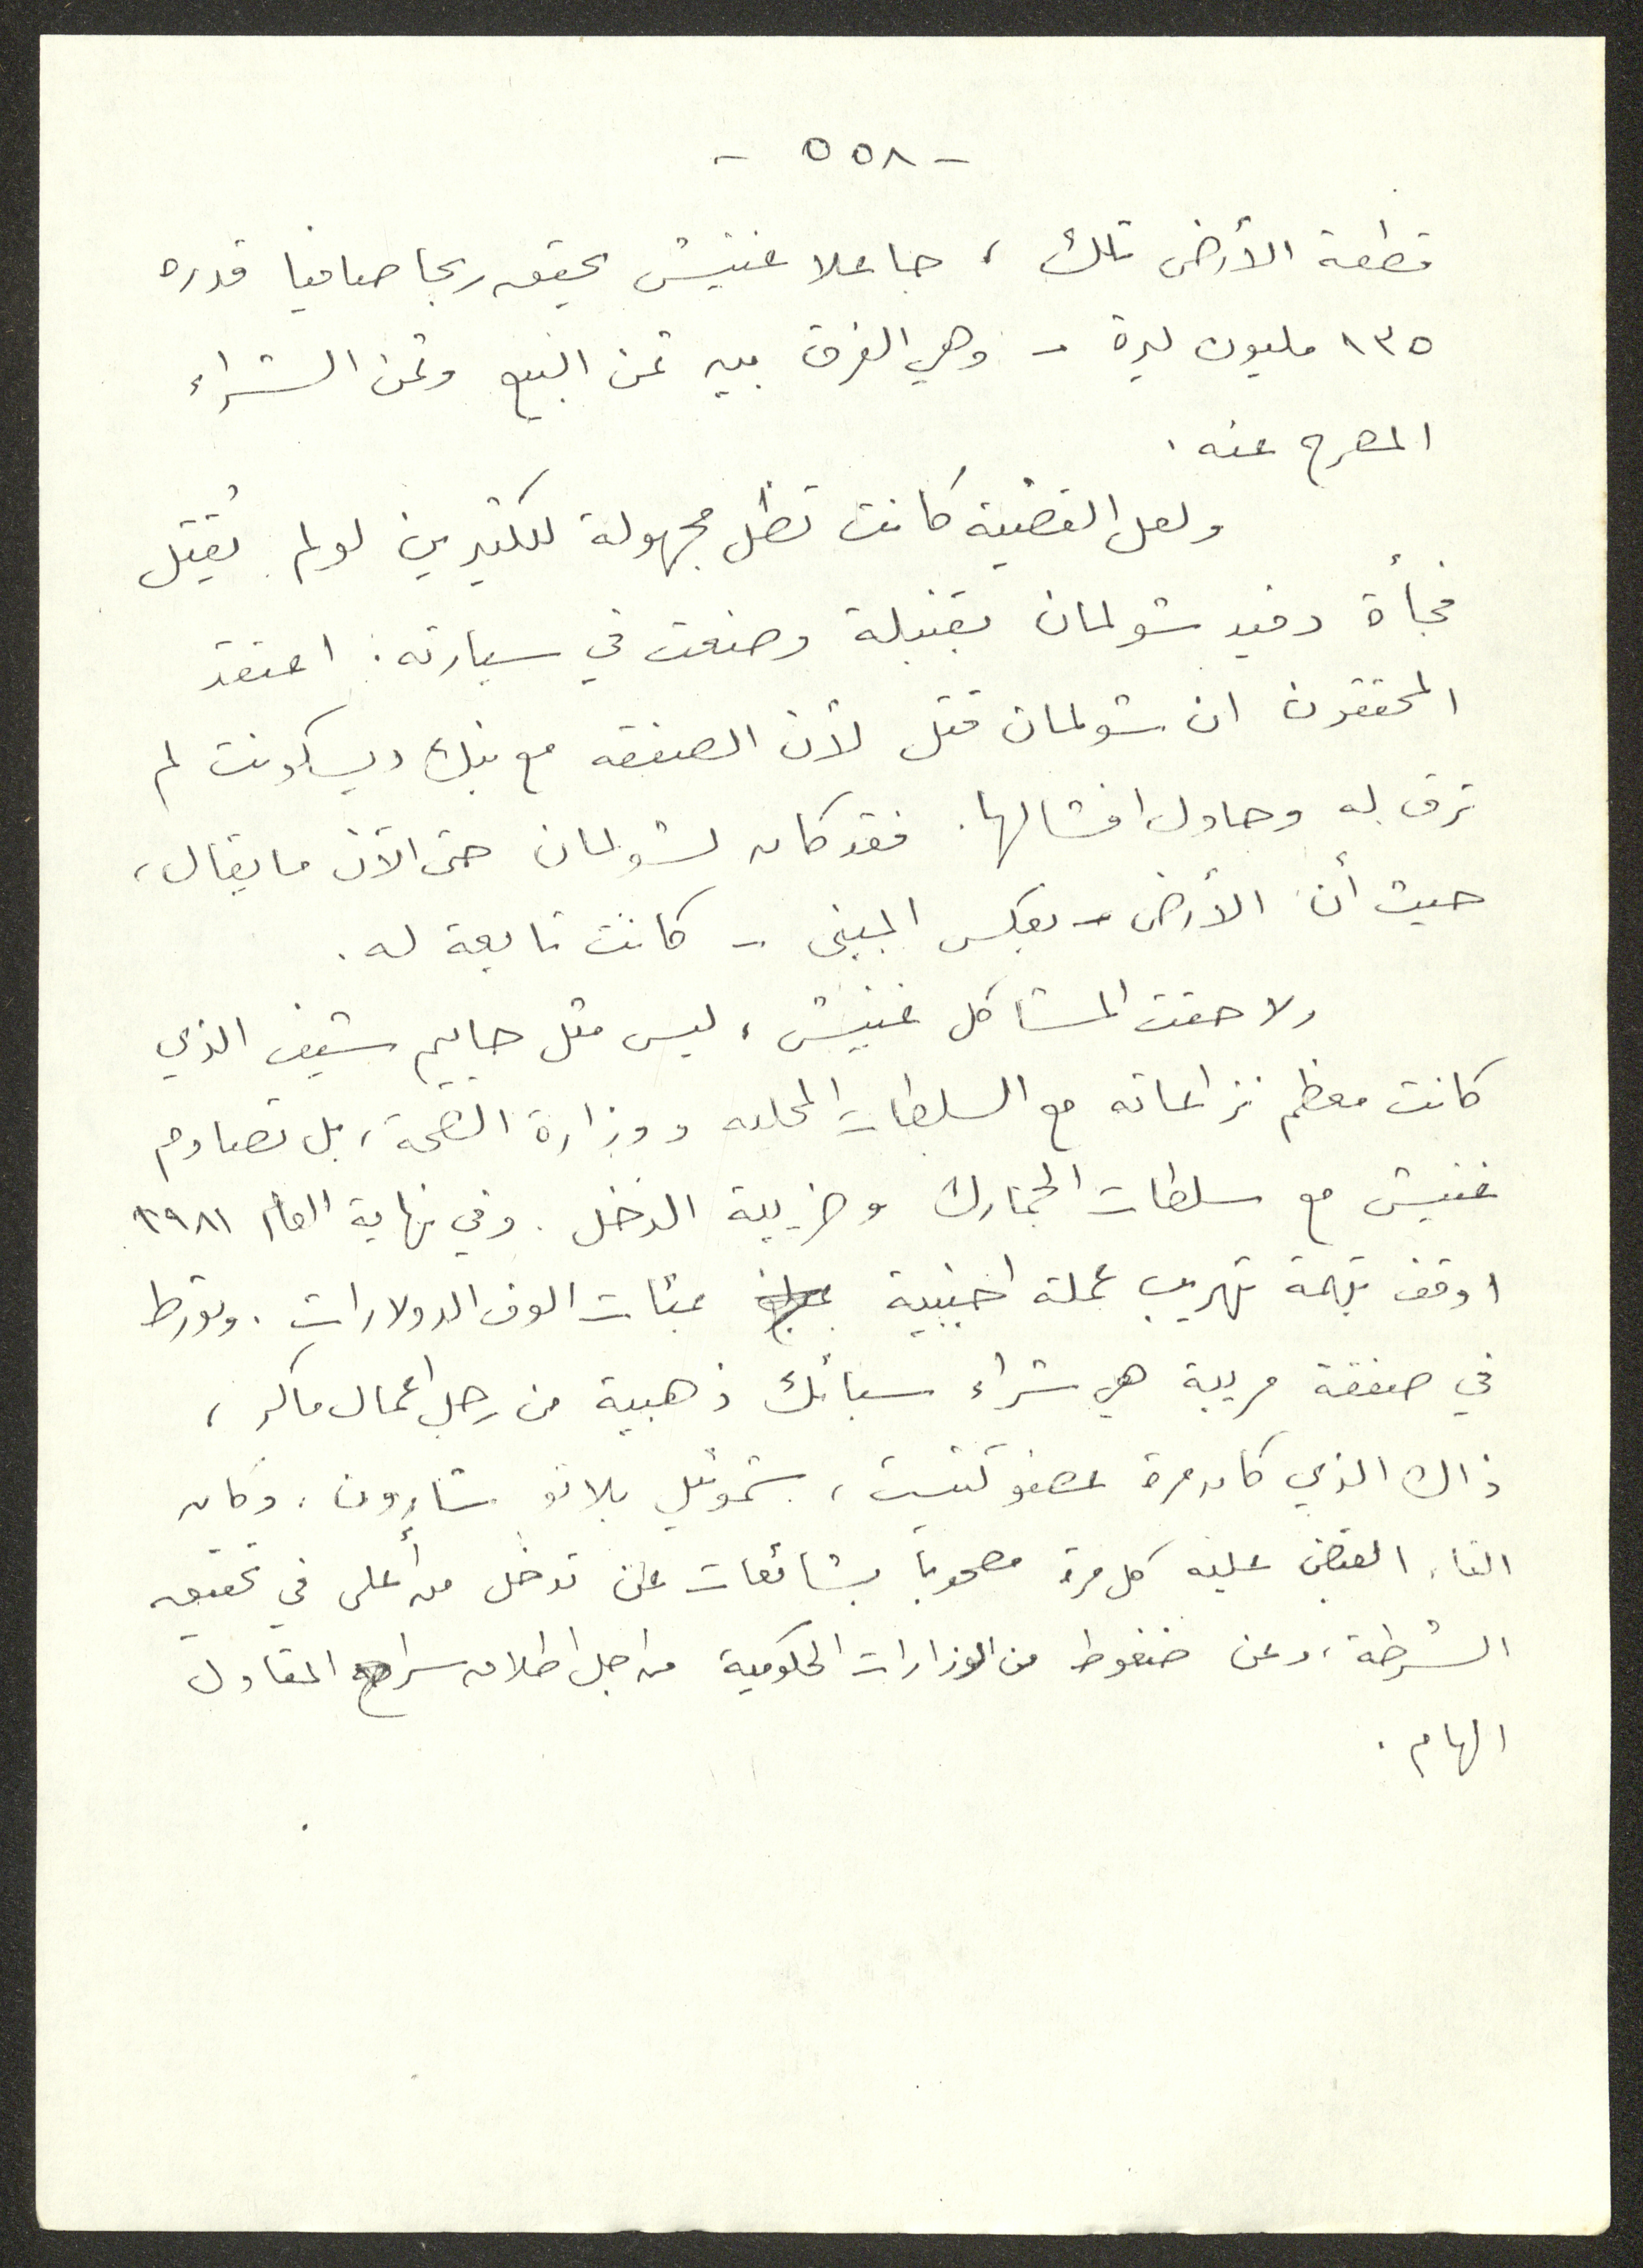 - ٥٥٨ -
قطعة الأرض تلك ، جاعلا غنيش يحقق ربحا صافيا قدره
١٣٥ مليون ليرة - وهي الفرق بين ثمن البيع وثمن الشراء
المصرح عنه .
ولعل القضية كانت تظل مجهولة للكثيرين لو لم يُقتل
فجأة دفيد شولمان بقنبلة وضعت في سيارته : اعتقد
المحققون ان شولمان قتل لأن الصفقه مع بنك ديسكونت لم
ترق له وحاول افشالها . فقد كان لشولمان حتى الآن ما يقال ،
حيث أن الأرض - بعكس المبنى - كانت تابعة له .
ولاحقت المشاكل غنيش ، ليس مثل حاييم شيف الذي
كانت معظم نزاعاته مع السلطات المحليه ووزارة الصحة ، بل تصادم
غنيش مع سلطات الجمارك وضريبة الدخل . وفي نهاية العام ١٩٨١
اوقف بتهمة تهريب عملة اجنبية بمئات الوف الدولارات . وتورط
في صفقة مريبة هي شراء سبائك ذهبية من رجل اعمال ماكر ،
ذاك الذي كان مرة عضو كنيست ، شموئيل بلاتو شارون . وكان
القاء القبض عليه كل مرة مصحوبا بشائعات عن تدخل من أعلى في تحقيق
الشرطة ، وعن ضغوط من الوزارات الحكومية من اجل اطلاق سراح المقاول
الهام .